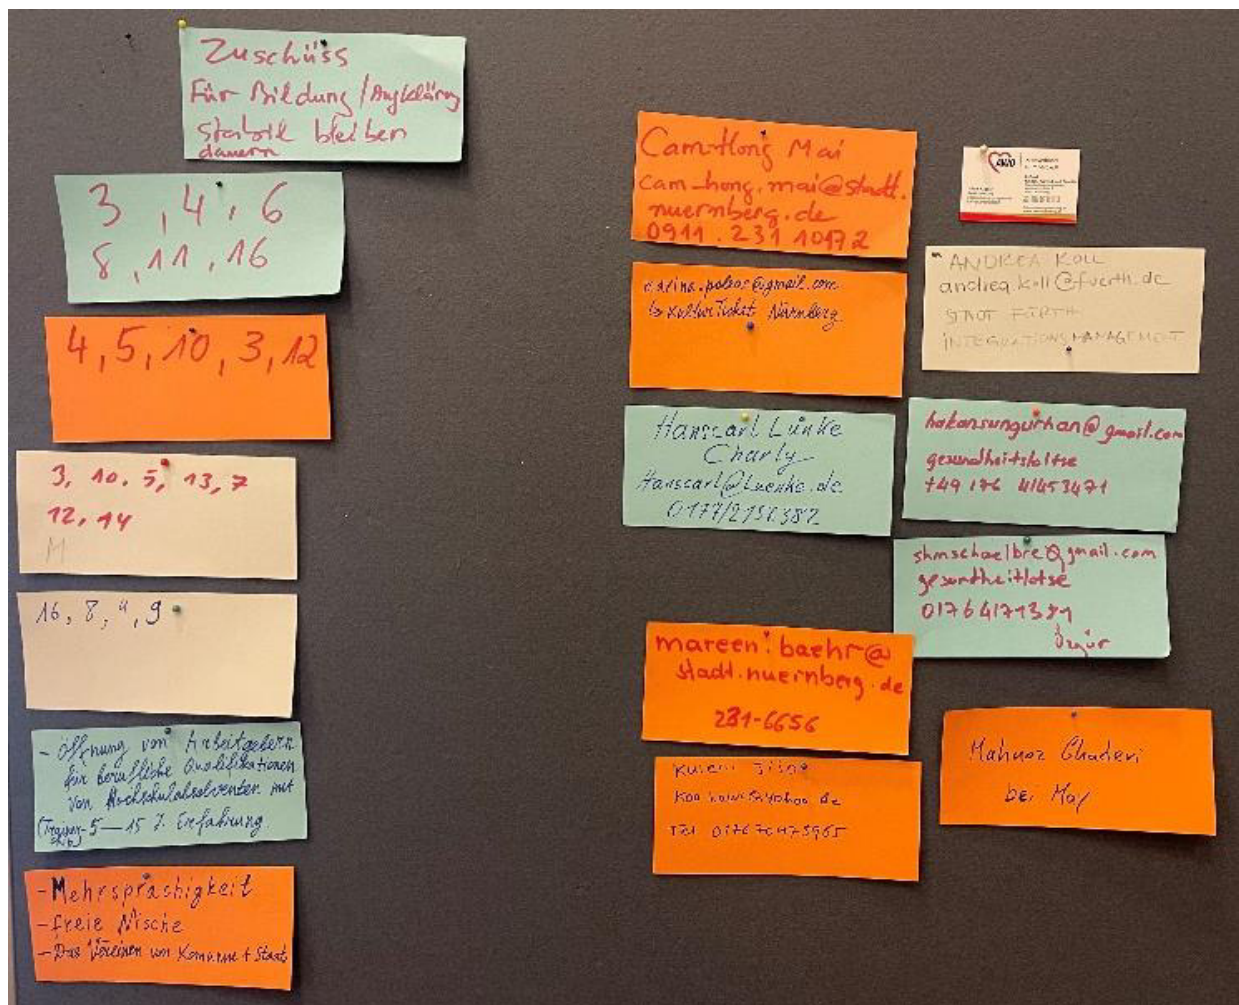 Zuschüss
Für Bildung / Aufklärung
stabil bleiben
dauern
3, 4, 6
8, 11, 16
4, 5, 10, 3, 12
3, 10, 5, 13, 7
12, 14
M
16, 8, 4, 9
- Öffnung von Arbeitgebern
für berufliche Qualifikationen
von Hochschulabsolventen mit
5 — 15 J. Erfahrung
- Mehrsprachigkeit
- freie Nische
- Das Vereinen von Kommune + Staat
Cam-Hong Mai
cam-hong.mai@stadt.
nuernberg.de
0911. 231 10172
↳ KulturTicket Nürnberg
Hanscarl Lünke
Charly
Hanscarl@Luenke.de
mareen.baehr@
stadt.nuernberg.de
231-6656
AWO
ANDREA KOLL
andrea.koll@fuerth.de
STADT FÜRTH
INTEGRATIONSMANAGEMENT
hakansungurhan@gmail.com
gesundheitslotse
+49 176 41453471
shmschaelbre@gmail.com
gesundheitlotse
Özgür
bei May